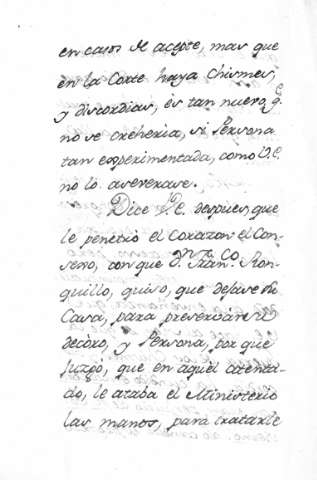 en casos de acepte, mas que
en la Corte haya chismes,
y discordias, es tan nuevo, q.e
no se creheria, si Persona
tan esperimentada, como V.E.
no lo averarase.
Dice V.E. despues, que
le penetró el Corazon el Con-
sejo, con que D.n Fran.co Ron-
quillo, quiso, que dejase mi
Casa, para preservar el
decóro, y Persona, por que
juzgó, que en aquel atenta-
do, le ataba el Ministerio
las manos, para tratarle